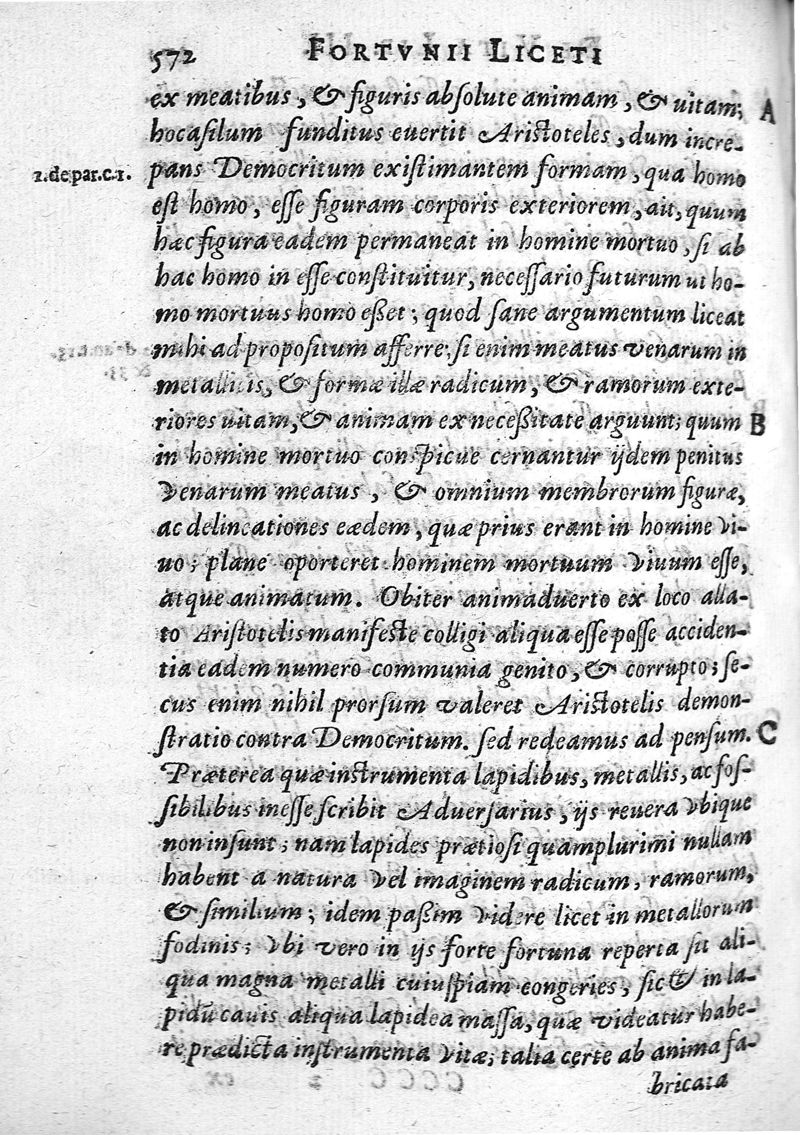 572 FORTVNII LICETI
ex meatibus, & figuris absolute animam, & uitam; A
hoc asilum funditus euertit Aristoteles, dum incre-
1. de par. c. 1. pans Democritum existimantem formam, qua homo
est homo, esse figuram corporis exteriorem, ait, quum
hæc figura eadem permaneat in homine mortuo, si ab
hac homo in esse constituitur, necessario futurum ut ho-
mo mortuus homo esset; quod sane argumentum liceat
mihi ad propositum afferre: si enim meatus venarum in
metallicis, & formæ illæ radicum, & ramorum exte-
riores uitam, & animam ex necessitate arguunt; quum B
in homine mortuo conspicue cernantur ijdem penitus
venarum meatus, & omnium membrorum figuræ,
ac delineationes eædem, quæ prius erant in homine vi-
uo; plane oporteret hominem mortuum viuum esse,
atque animatum. Obiter animaduerto ex loco alla-
to Aristotelis manifeste colligi aliqua esse posse acciden-
tia eadem numero communia genito, & corrupto; se-
cus enim nihil prorsum valeret Aristotelis demon-
stratio contra Democritum. sed redeamus ad pensum. C
Præterea quæ instrumenta lapidibus, metallis, ac fos-
sibilibus inesse scribit Aduersarius, ijs reuera vbique
non insunt; nam lapides prætiosi quamplurimi nullam
habent a natura vel imaginem radicum, ramorum,
& similium; idem passim videre licet in metallorum
fodinis; vbi vero in ijs forte fortuna reperta sit ali-
qua magna metalli cuiuspiam congeries, sic & in la-
pidū cauis aliqua lapidea massa, quæ videatur habe-
re prædicta instrumenta vitæ; talia certe ab anima fa-
bricata